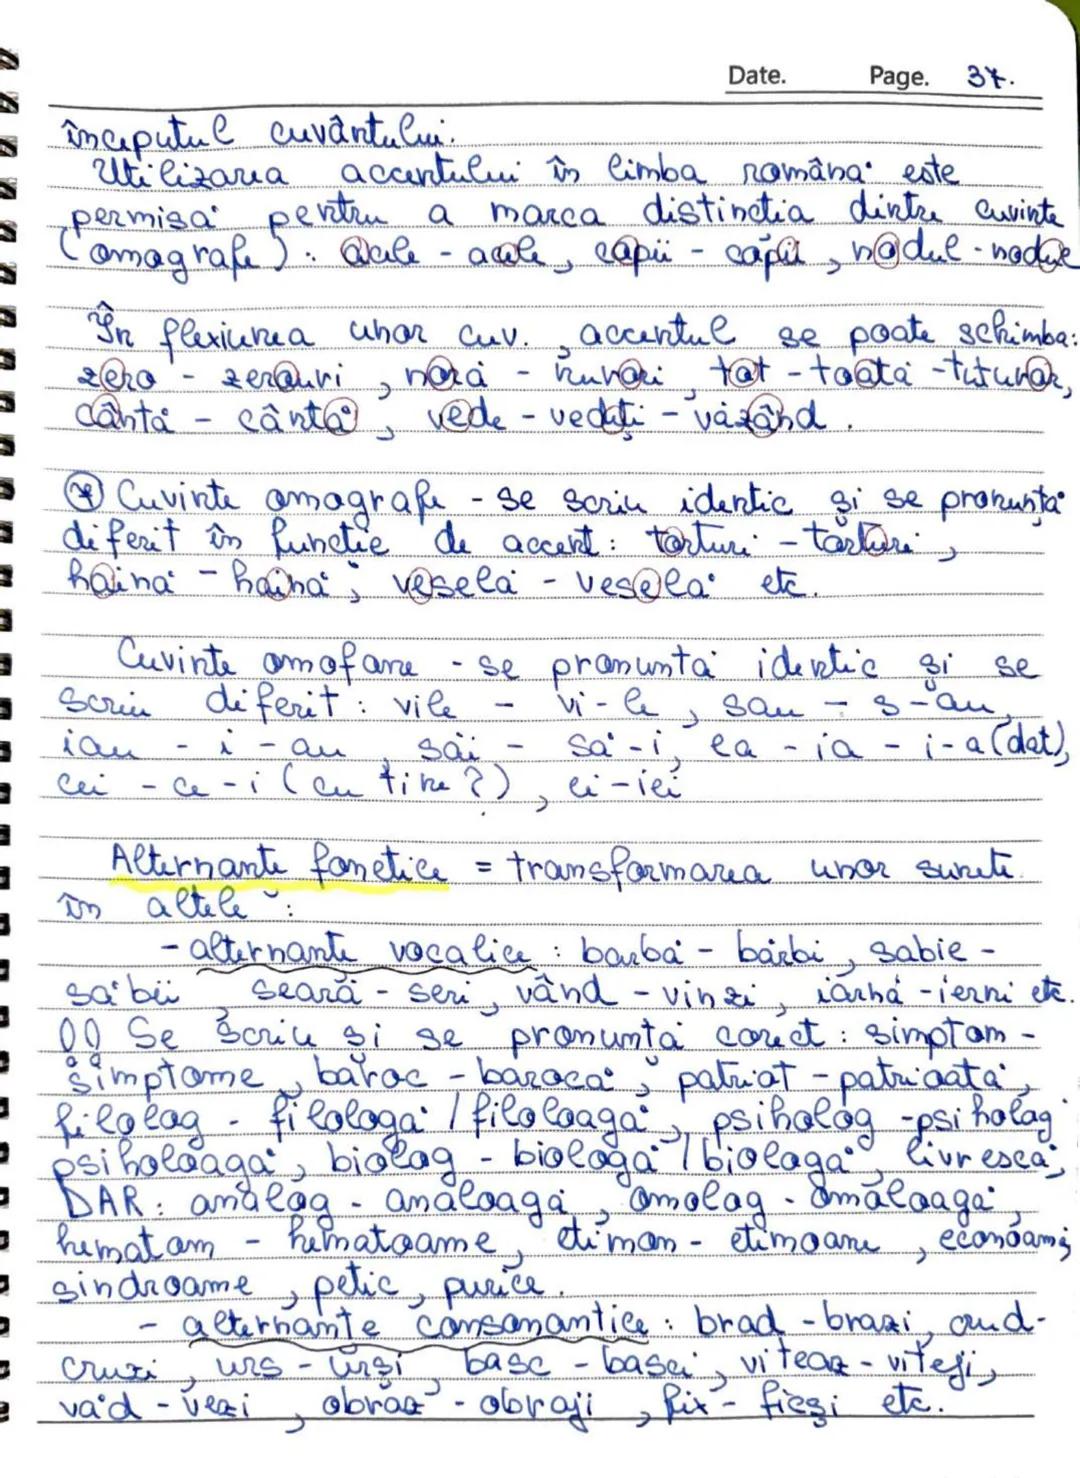 Date. Page. 37.
începutul cuvântului.
Utilizarea accentului în limba română este
permisă pentru a marca distincția dintre cuvinte
(omografe): acele - acele, copii - copii, nodul - nodul
În flexiunea unor cuv., accentul se poate schimba:
zero - zerouri, noră - nurori, tot - toată - tuturor,
cântă - cântă, vede - vedeți - văzând.
* Cuvinte omografe - se scriu identic și se pronunță
diferit în funcție de accent: torturi - torturi,
haină - haină, veselă - veselă etc.
Cuvinte omofone - se pronunță identic și se
scriu diferit: vile - vi-le, sau - s-au,
iau - i-au, săi - să-i, ea - ia - i-a (dat),
cei - ce-i (cu tine?), ei - iei
Alternanțe fonetice = transformarea unor sunete
în altele:
- alternanțe vocalice: barbă - bărbi, sabie -
săbii, seară - seri, vând - vinzi, iarnă - ierni etc.
!! Se scriu și se pronunță corect: simptom -
simptome, baroc - barocă, patriot - patrioată,
filolog - filologă / filoloagă, psiholog - psihologă
psiholoagă, biolog - biologă / biologă, livrescă;
DAR: analog - analoagă, omolog - omoloagă,
hematom - hematoame, etimon - etimoane, econoamă;
sindroame, petic, purice.
- alternanțe consonantice: brad - brazi, crud -
cruzi, urs - urși, basc - basci, viteaz - viteji,
văd - vezi, obraz - obraji, fix - ficși etc.